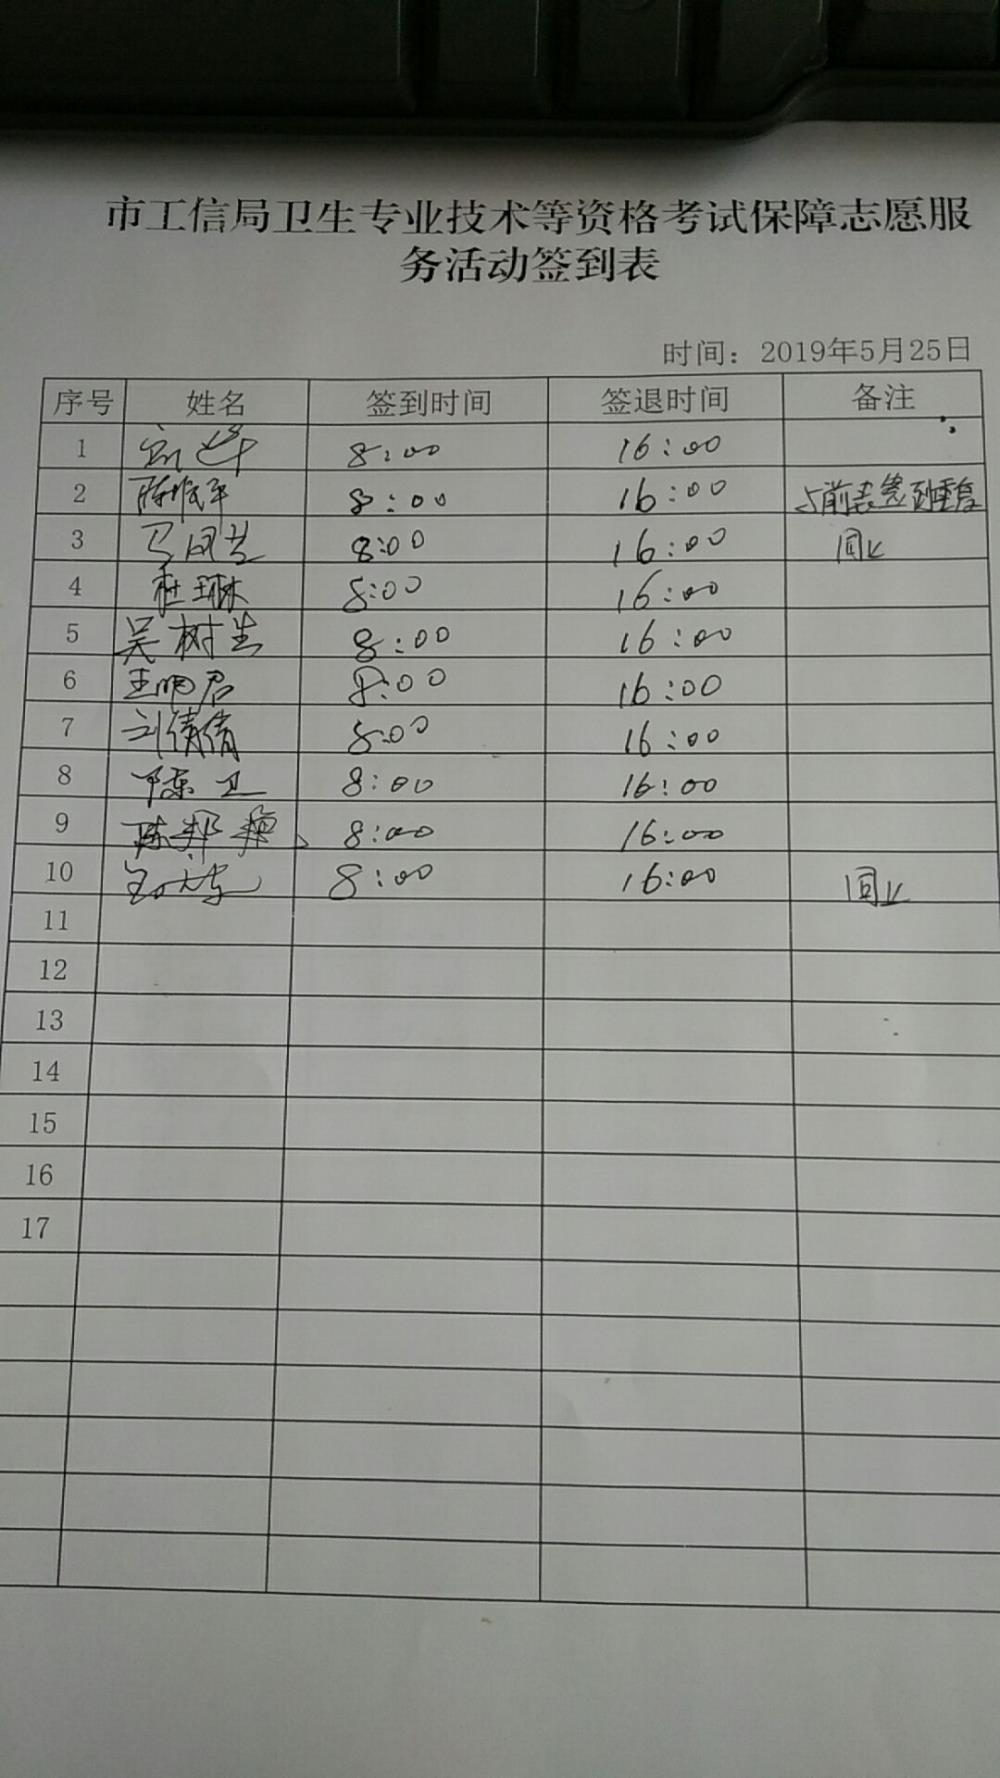 市工信局卫生专业技术等资格考试保障志愿服
务活动签到表
时间：2019年5月25日
序号 姓名 签到时间 签退时间 备注
1 8:00 16:00
2 8:00 16:00 与前表签到重复
3 8:00 16:00 同上
4 杜琳 8:00 16:00
5 吴树生 8:00 16:00
6 8:00 16:00
7 刘倩倩 8:00 16:00
8 陈卫 8:00 16:00
9 8:00 16:00
10 8:00 16:00 同上
11
12
13
14
15
16
17